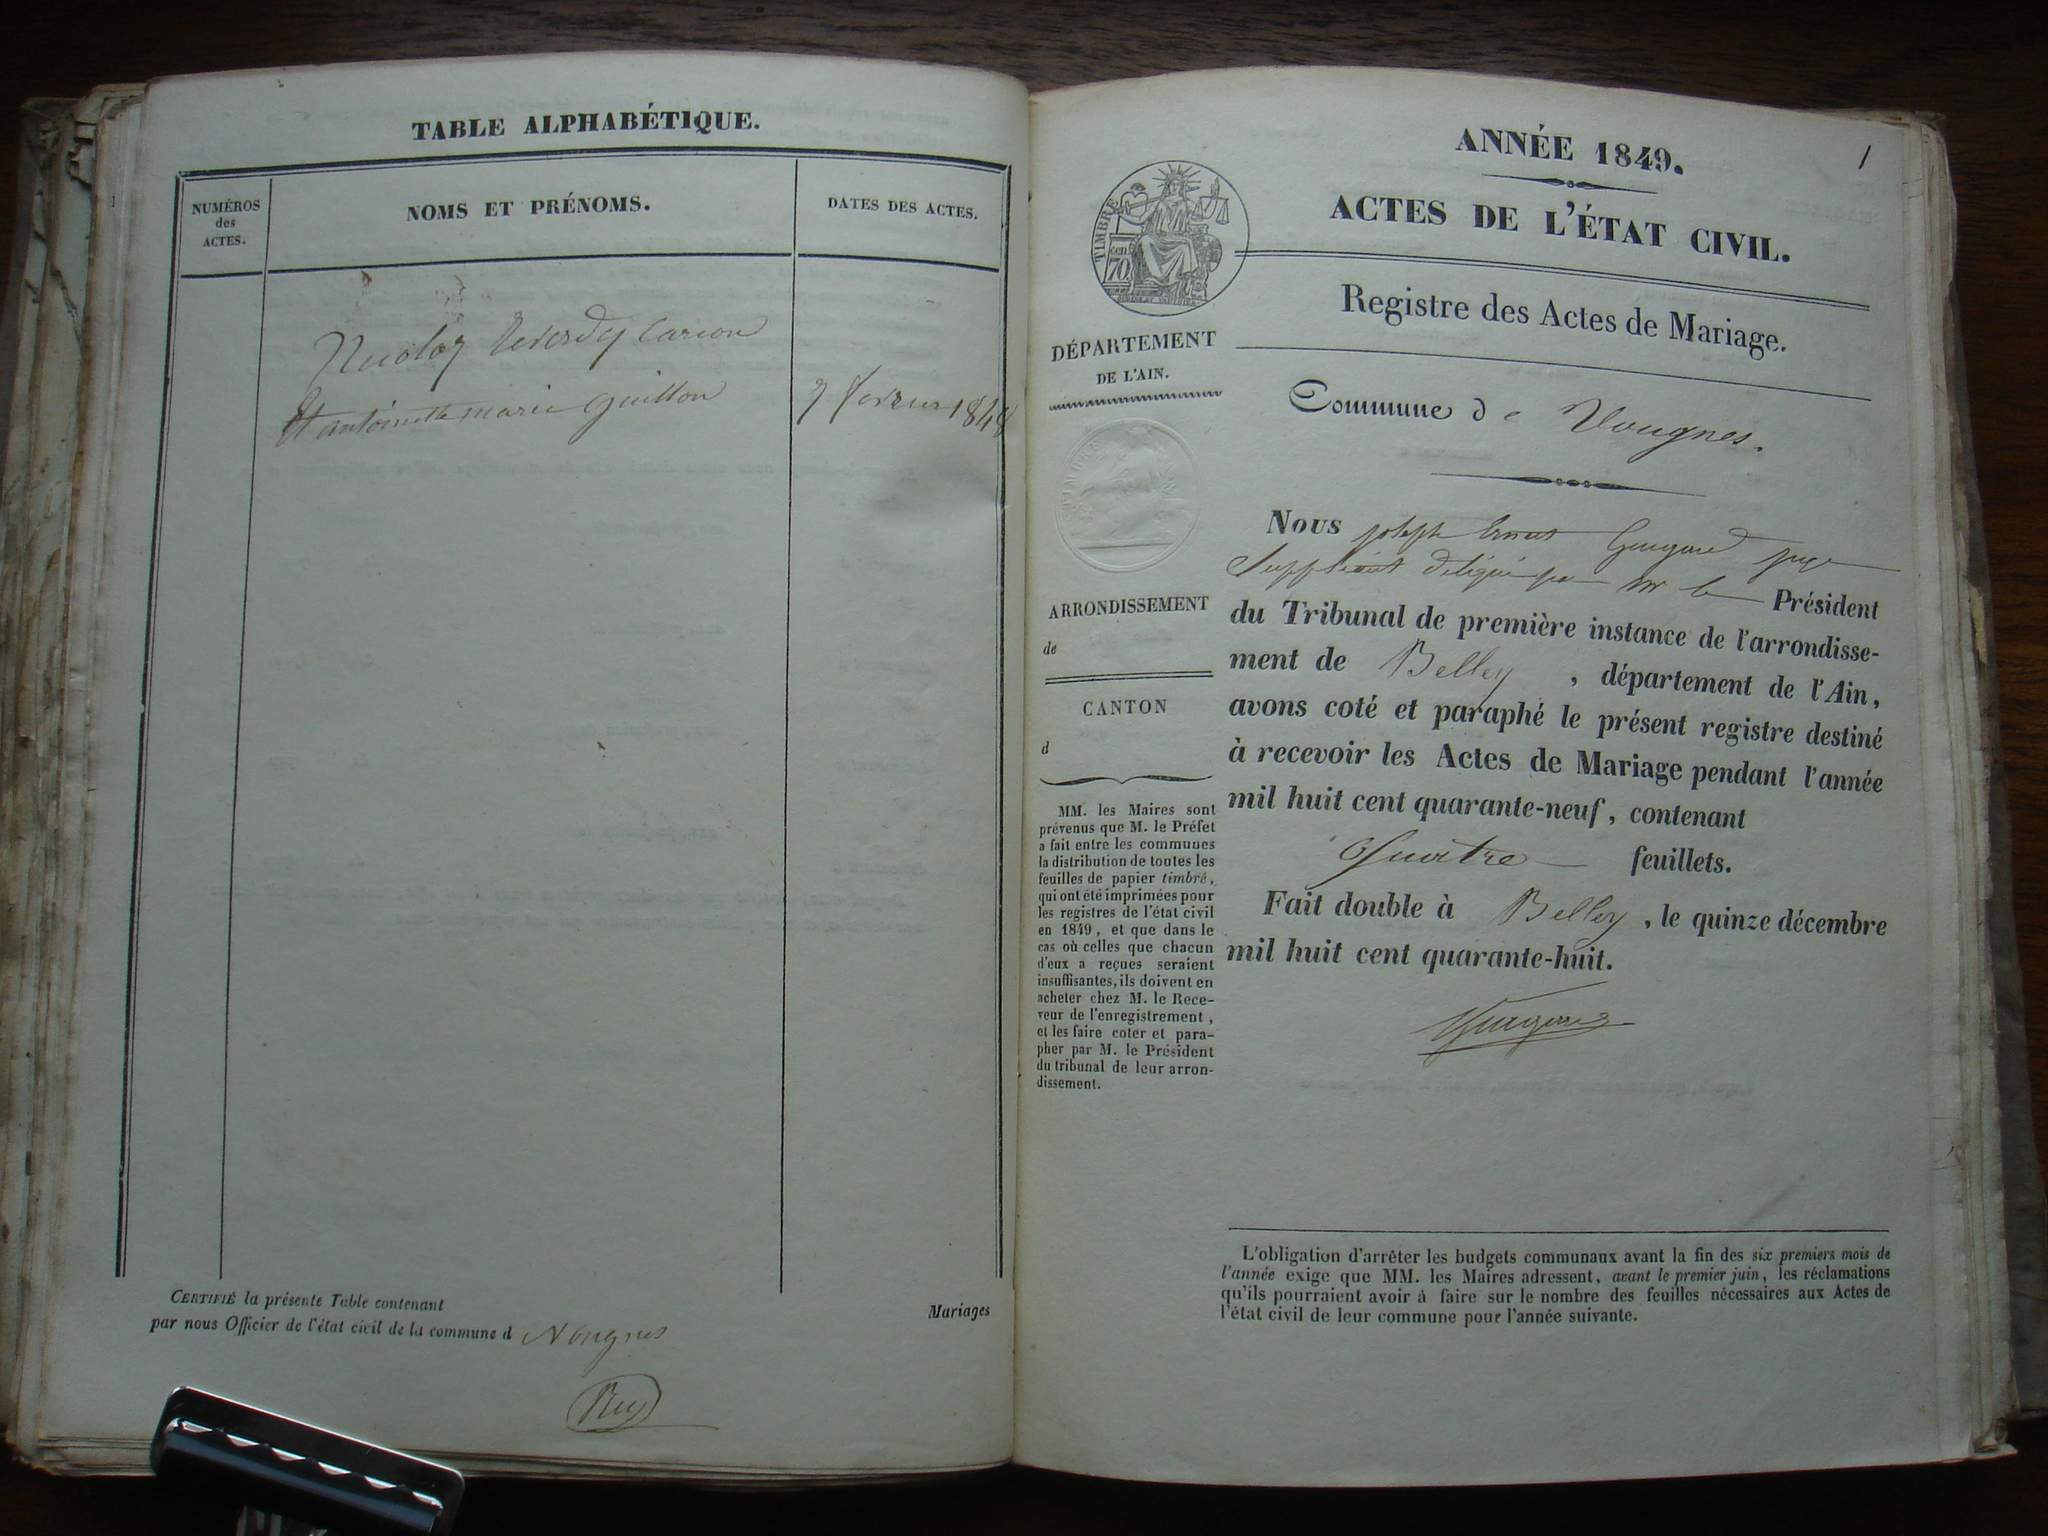 TABLE ALPHABÉTIQUE.
NUMÉROS
des
ACTES.
NOMS ET PRÉNOMS.
DATES DES ACTES.
Carion
Et antoinette marie guillon
7 fevrier 1848
CERTIFIÉ la présente Table contenant
Mariages
par nous Officier de l'état civil de la commune d
ANNÉE 1849.
1
ACTES DE L'ÉTAT CIVIL.
TIMBRE
70
Registre des Actes de Mariage.
DÉPARTEMENT
DE L'AIN.
Commune de Vongnes.
TIMBRE
ARRONDISSEMENT
de
CANTON
d
MM. les Maires sont
prévenus que M. le Préfet
a fait entre les communes
la distribution de toutes les
feuilles de papier timbré,
qui ont été imprimées pour
les registres de l'état civil
en 1849, et que dans le
cas où celles que chacun
d'eux a reçues seraient
insuffisantes, ils doivent en
acheter chez M. le Rece-
veur de l'enregistrement,
et les faire coter et para-
pher par M. le Président
du tribunal de leur arron-
dissement.
Nous joseph juge
Suppléant délégué par Mr le Président
du Tribunal de première instance de l'arrondisse-
ment de Belley, département de l'Ain,
avons coté et paraphé le présent registre destiné
à recevoir les Actes de Mariage pendant l'année
mil huit cent quarante-neuf, contenant
Quatre feuillets.
Fait double à Belley, le quinze décembre
mil huit cent quarante-huit.
L'obligation d'arrêter les budgets communaux avant la fin des six premiers mois de
l'année exige que MM. les Maires adressent, avant le premier juin, les réclamations
qu'ils pourraient avoir à faire sur le nombre des feuilles nécessaires aux Actes de
l'état civil de leur commune pour l'année suivante.